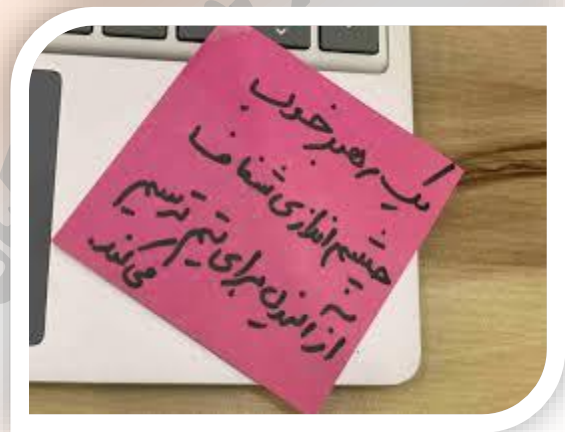 یک رهبر خوب
چشم اندازی شفاف
از آینده برای تیم ترسیم
می کند.